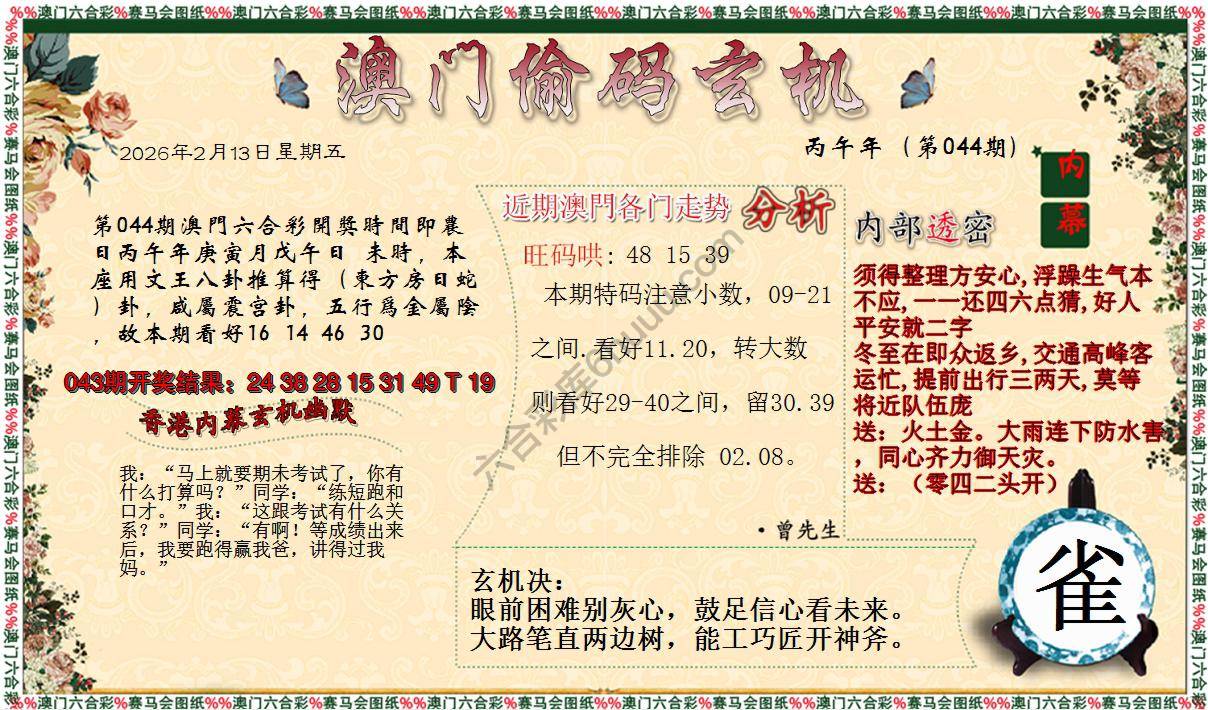 %%澳门六合彩%赛马会图纸%%澳门六合彩%赛马会图纸%%澳门六合彩%赛马会图纸%%澳门六合彩%赛马会图纸%%澳门六合彩%赛马会图纸%%澳门六合彩%赛马会图纸%%
澳门偷码玄机
2026年2月13日星期五
丙午年（第044期）
内幕
第044期澳門六合彩開獎時間即農
日丙午年庚寅月戊午日 未時，本
座用文王八卦推算得（東方房日蛇
）卦，咸屬震宫卦，五行爲金屬陰
，故本期看好16 14 46 30
043期开奖结果：24 38 28 15 31 49 T 19
香港内幕玄机幽默
我：“马上就要期未考试了，你有
什么打算吗？”同学：“练短跑和
口才。”我：“这跟考试有什么关
系？”同学：“有啊！等成绩出来
后，我要跑得赢我爸，讲得过我
妈。”
近期澳門各门走势 分析
旺码哄: 48 15 39
本期特码注意小数，09-21
之间.看好11.20，转大数
则看好29-40之间，留30.39
但不完全排除 02.08。
·曾先生
内部透密
须得整理方安心,浮躁生气本
不应,一一还四六点猜,好人
平安就二字
冬至在即众返乡,交通高峰客
运忙,提前出行三两天,莫等
将近队伍庞
送：火土金。大雨连下防水害
，同心齐力御天灾。
送：（零四二头开）
玄机决：
眼前困难别灰心，鼓足信心看未来。
大路笔直两边树，能工巧匠开神斧。
雀
%%澳门六合彩%赛马会图纸%%澳门六合彩%赛马会图纸%%澳门六合彩%赛马会图纸%%澳门六合彩%赛马会图纸%%澳门六合彩%赛马会图纸%%澳门六合彩%赛马会图纸%%